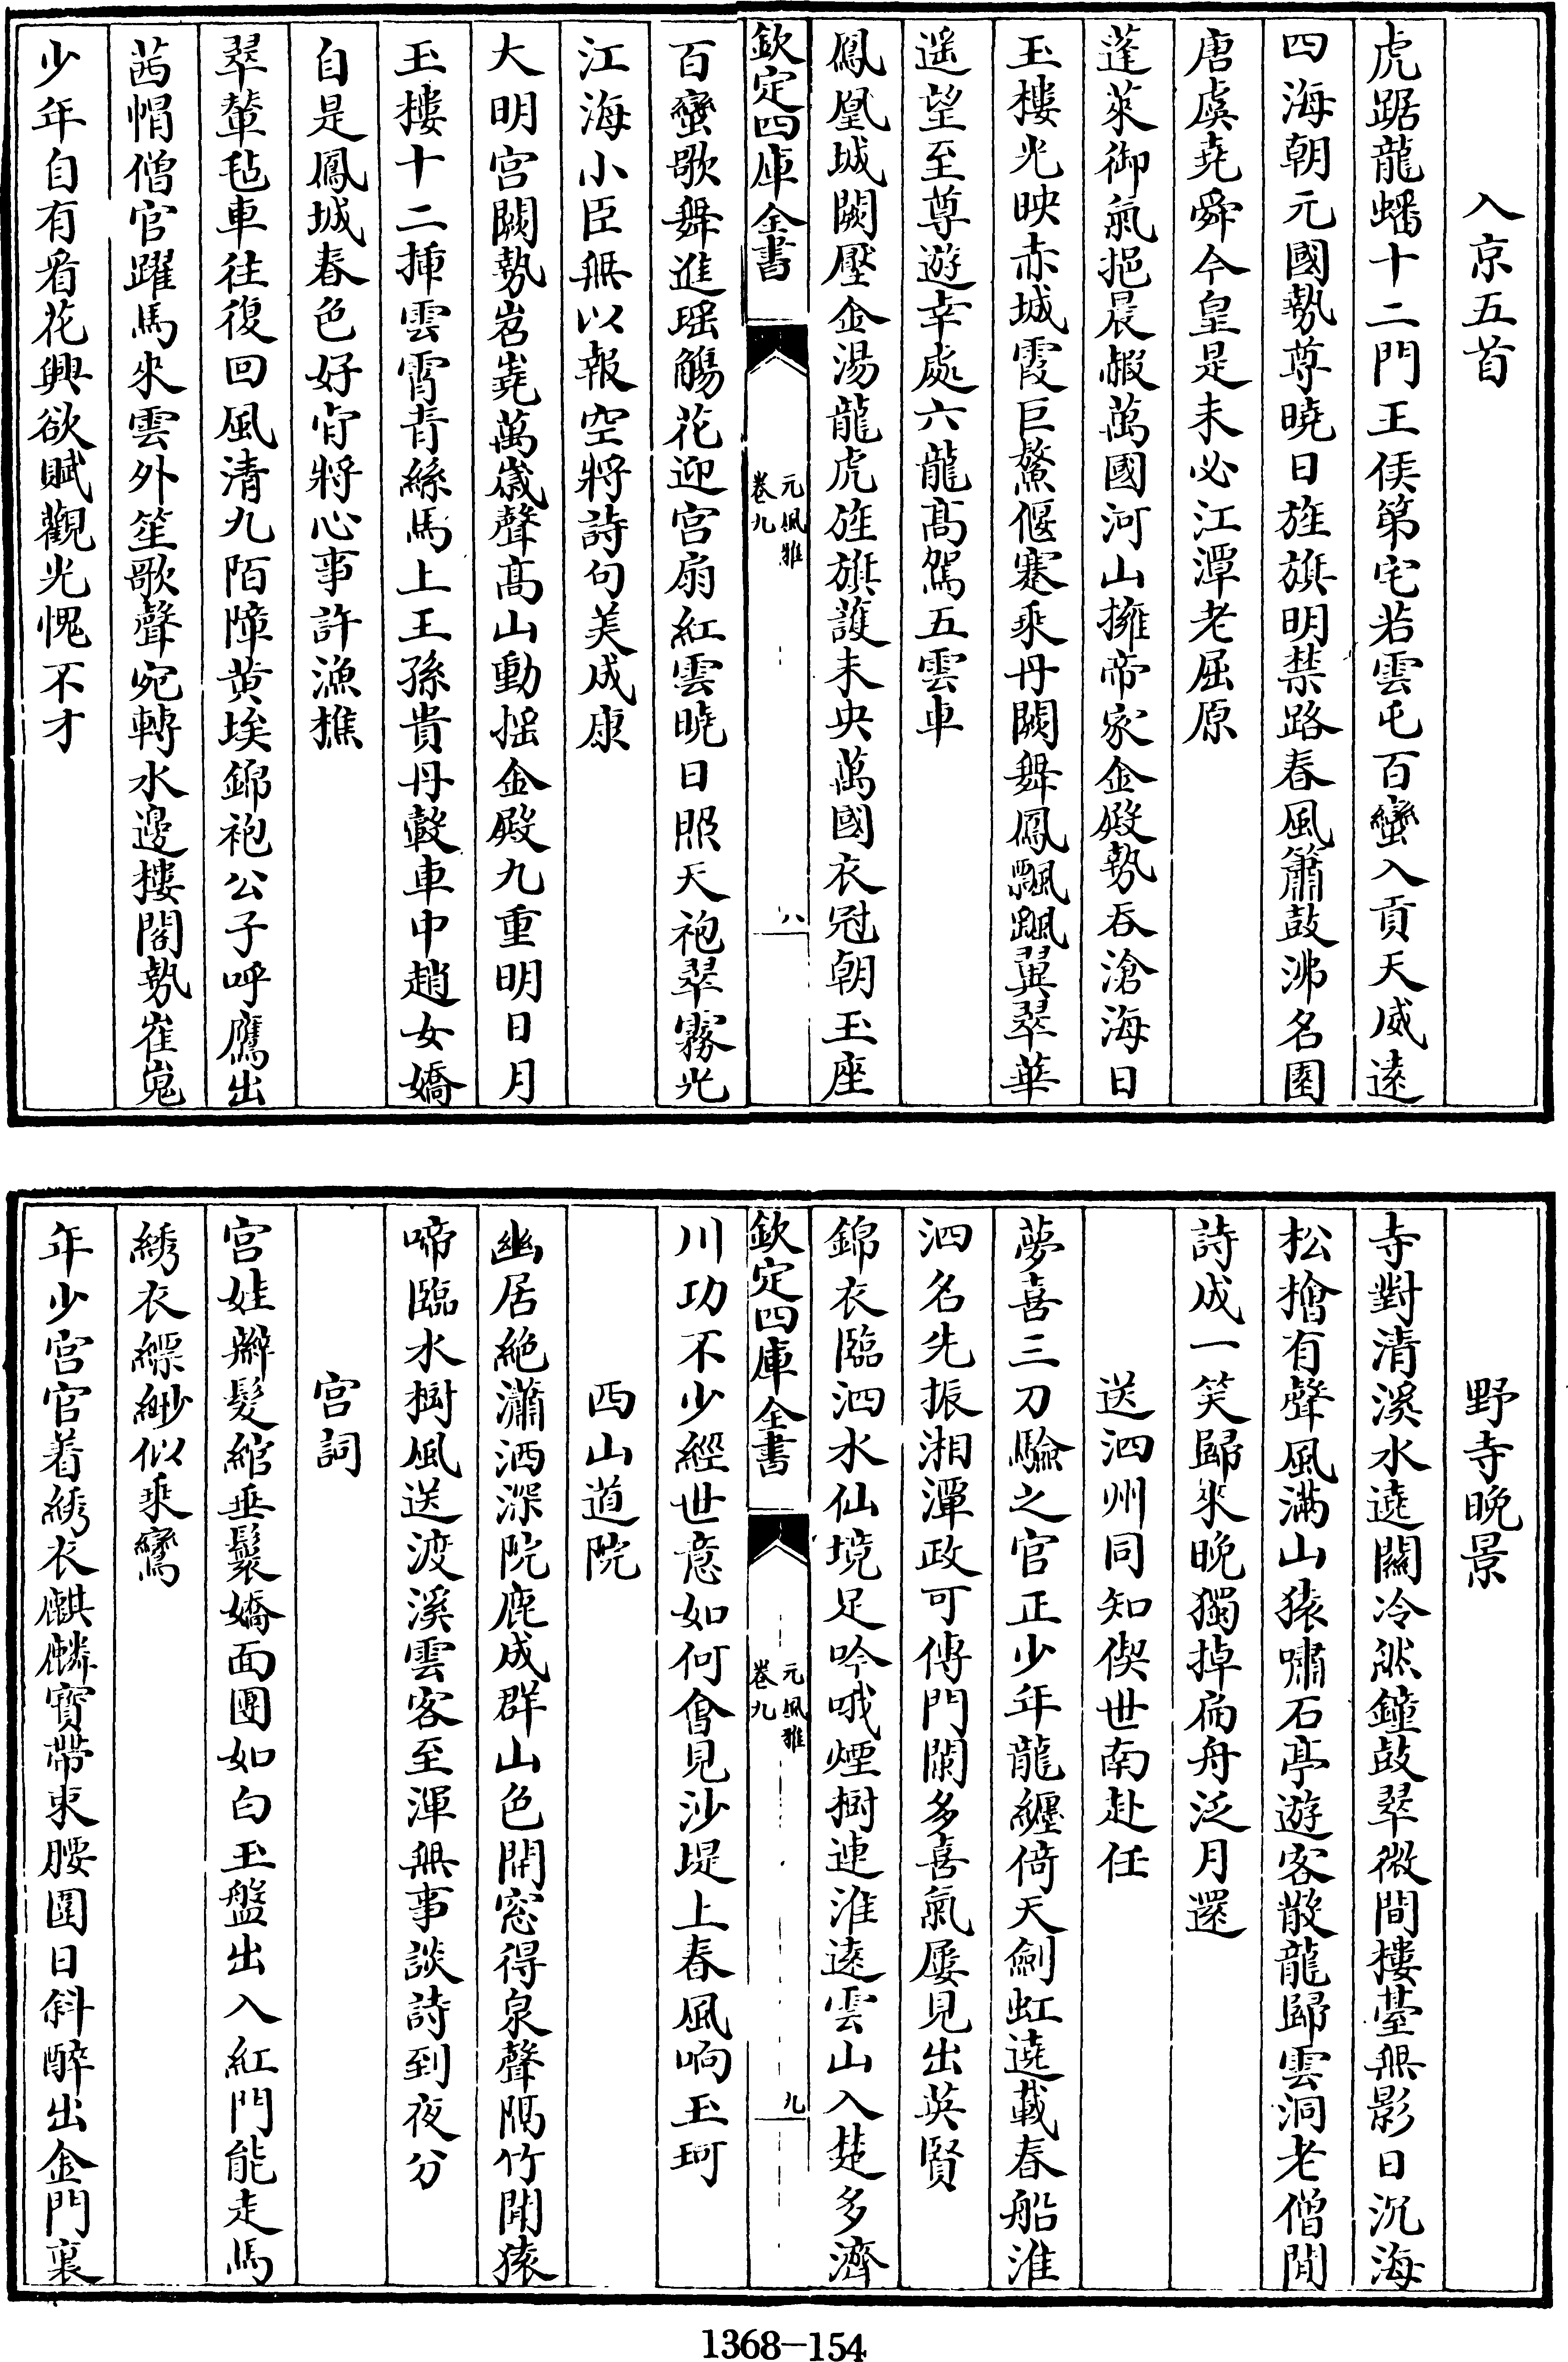 入京五首
虎踞龍蟠十二門王侯第宅若雲屯百蠻入貢天威遠
四海朝元國勢尊曉日旌旗明禁路春風簫鼓沸名園
唐虞堯舜今皇是未必江潭老屈原
蓬萊御氣挹晨嘏萬國河山擁帝家金殿勢吞滄海日
玉樓光映赤城霞巨鰲偃蹇乘丹闕舞鳳飄颻翼翠華
遥望至尊遊幸處六龍高駕五雲車
鳳凰城闕壓金湯龍虎旌旗護未央萬國衣冠朝玉座
欽定四庫全書
元風雅
卷九
八
百蠻歌舞進瑶觴花迎宮扇紅雲曉日照天袍翠霧光
江海小臣無以報空將詩句美成康
大明宮闕勢岧嶤萬歲聲高山動摇金殿九重明日月
玉樓十二揷雲霄青絲馬上王孫貴丹轂車中趙女嬌
自是鳳城春色好肯將心事許漁樵
翠輦毡車往復回風清九陌障黄埃錦袍公子呼鷹出
茜㡌僧官躍馬來雲外笙歌聲宛轉水邊樓閣勢崔嵬
少年自有看花興欲賦觀光愧不才
野寺晚景
寺對清溪水遶關冷然鐘鼓翠微間樓臺無影日沉海
松檜有聲風滿山猿嘯石亭遊客散龍歸雲洞老僧閒
詩成一笑歸來晚獨掉扁舟泛月還
送泗州同知偰世南赴任
夢喜三刀驗之官正少年龍纏倚天劍虹遶載春船淮
泗名先振湘潭政可傳門闌多喜氣屢見出英賢
錦衣臨泗水仙境足吟哦煙樹連淮遠雲山入楚多濟
欽定四庫全書
元風雅
卷九
九
川功不少經世意如何會見沙堤上春風响玉珂
西山道院
幽居絶瀟洒深院鹿成群山色開窓得泉聲隔竹聞猿
啼臨水樹風送渡溪雲客至渾無事談詩到夜分
宮詞
宮娃辮髮綰垂鬟嬌面團如白玉盤出入紅門能走馬
綉衣縹緲似乘鸞
年少宮官着綉衣麒麟寶帶束腰圍日斜醉出金門裏
1368–154